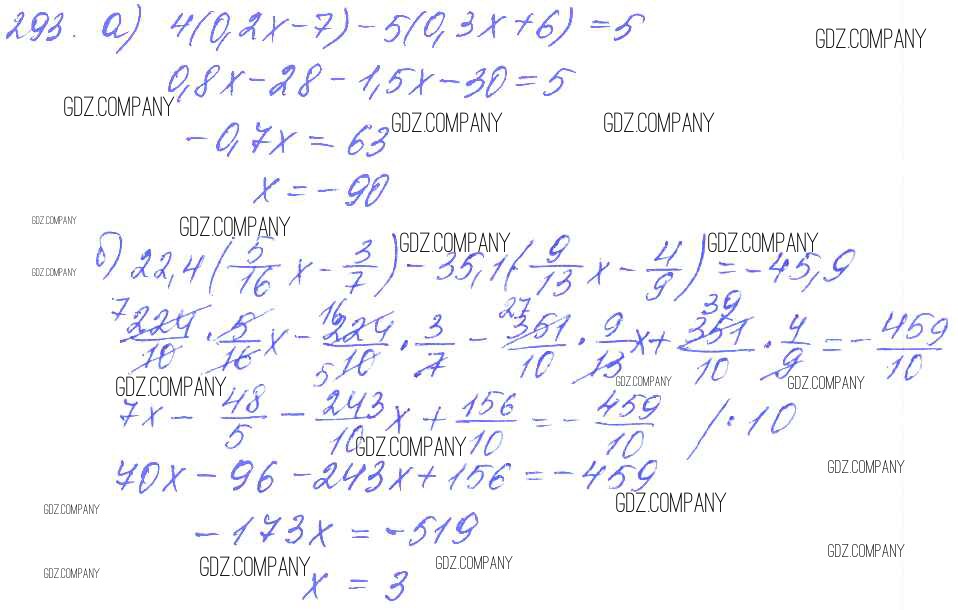 293. а) 4(0,2x-7)-5(0,3x+6)=5
GDZ.COMPANY
0,8x-28-1,5x-30=5
GDZ.COMPANY GDZ.COMPANY GDZ.COMPANY
-0,7x=63
x=-90
GDZ.COMPANY GDZ.COMPANY
GDZ.COMPANY GDZ.COMPANY GDZ.COMPANY
б) 22,4(5/16 x - 3/7) - 35,1(9/13 x - 4/9) = -45,9
7 16 27 39
224/10 · 5/16 x - 224/10 · 3/7 - 351/10 · 9/13 x + 351/10 · 4/9 = - 459/10
5
GDZ.COMPANY GDZ.COMPANY GDZ.COMPANY
7x - 48/5 - 243/10 x + 156/10 = - 459/10 /·10
GDZ.COMPANY GDZ.COMPANY
70x-96-243x+156=-459
GDZ.COMPANY GDZ.COMPANY
-173x=-519
GDZ.COMPANY GDZ.COMPANY GDZ.COMPANY GDZ.COMPANY
x = 3